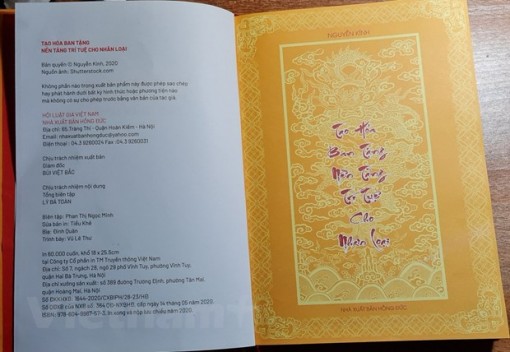 TẠO HÓA BAN TẶNG
NỀN TẢNG TRÍ TUỆ CHO NHÂN LOẠI
Bản quyền © Nguyễn Kính, 2020
Nguồn ảnh: Shutterstock.com
Không phần nào trong xuất bản phẩm này được phép sao chép
hay phát hành dưới bất kỳ hình thức hoặc phương tiện nào
mà không có sự cho phép trước bằng văn bản của tác giả.
HỘI LUẬT GIA VIỆT NAM
NHÀ XUẤT BẢN HỒNG ĐỨC
Địa chỉ: 65 Tràng Thi - Quận Hoàn Kiếm - Hà Nội
Email: nhaxuatbanhongduc@yahoo.com
Điện thoại: 04.3 9260024 Fax: 04.3 9260031
Chịu trách nhiệm xuất bản
Giám đốc
BÙI VIỆT BẮC
Chịu trách nhiệm nội dung
Tổng biên tập
LÝ BÁ TOÀN
Biên tập: Phan Thị Ngọc Minh
Sửa bản in: Tiểu Khê
Bìa: Đinh Quân
Trình bày: Vũ Lê Thư
In 60.000 cuốn, khổ 18 x 25.5cm
tại Công ty Cổ phần in TM Truyền thông Việt Nam
Địa chỉ: Số 7, ngách 28, ngõ 28 phố Vĩnh Tuy, phường Vĩnh Tuy,
quận Hai Bà Trưng, Hà Nội
Địa chỉ xưởng sản xuất: số 386 đường Trương Định, phường Tân Mai,
quận Hoàng Mai, Hà Nội
Số ĐKKHXB: 1844-2020/CXBIPH/26-23/HĐ
Số QĐXB của NXB số: 364/QĐ-NXBHĐ, cấp ngày 14 tháng 05 năm 2020.
In xong và nộp lưu chiểu năm 2020.
NGUYỄN KÍNH
Tạo Hóa
Ban Tặng
Nền Tảng
Trí Tuệ
Cho
Nhân Loại
NHÀ XUẤT BẢN HỒNG ĐỨC